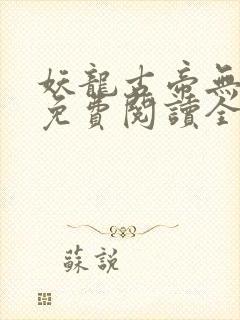 妖龍古帝無
免費閱讀全
蘇說